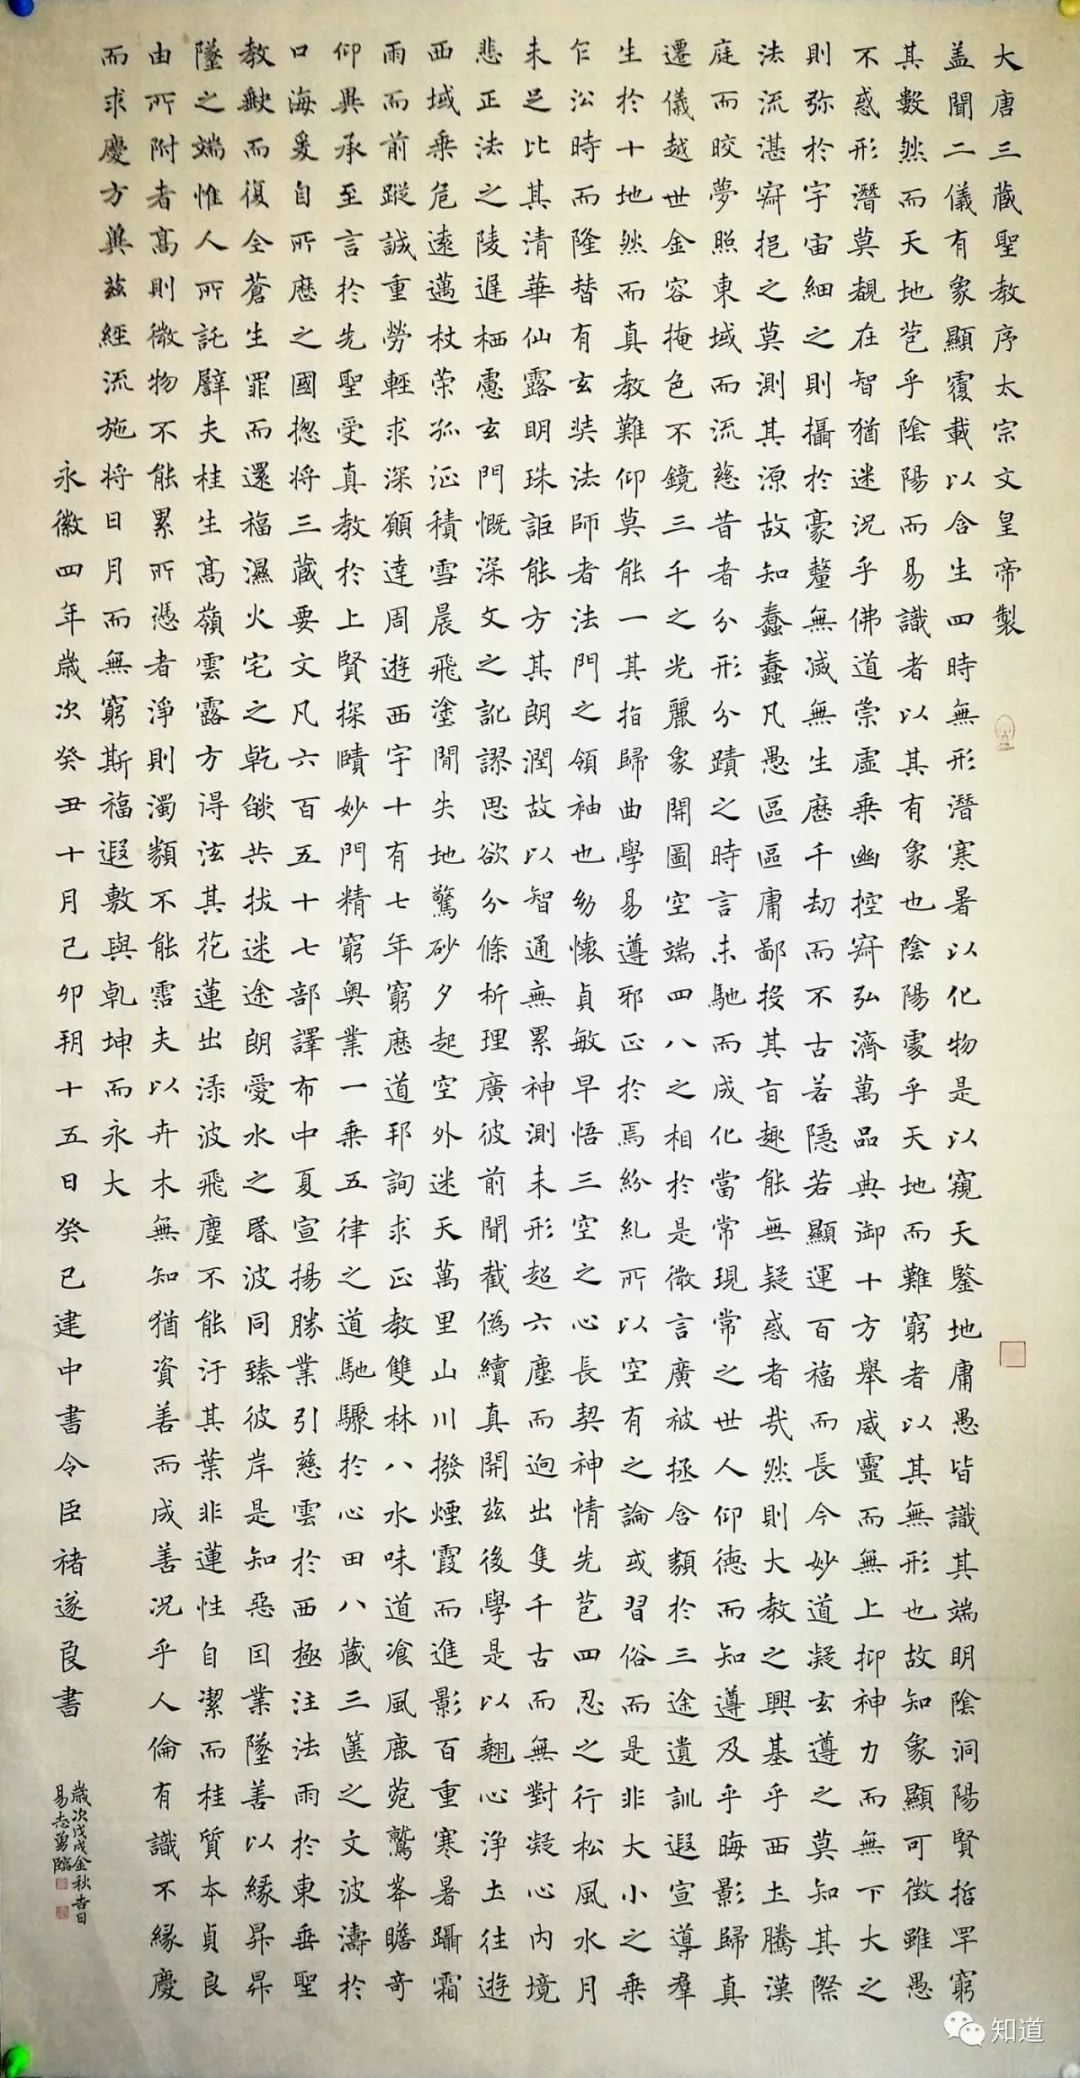 大唐三藏聖教序太宗文皇帝製
盖聞二儀有象顯覆載以含生四時無形潛寒暑以化物是以窺天鑒地庸愚皆識其端明陰洞陽賢哲罕窮
其數然而天地苞乎陰陽而易識者以其有象也陰陽處乎天地而難窮者以其無形也故知象顯可徵雖愚
不惑形潛莫覩在智猶迷況乎佛道崇虛乘幽控寂弘濟萬品典御十方舉威靈而無上抑神力而無下大之
則弥於宇宙細之則攝於豪釐無滅無生歷千劫而不古若隱若顯運百福而長今妙道凝玄遵之莫知其際
法流湛寂挹之莫測其源故知蠢蠢凡愚區區庸鄙投其旨趣能無疑惑者哉然則大教之興基乎西土騰漢
庭而皎夢照東域而流慈昔者分形分蹟之時言未馳而成化當常現常之世人仰德而知遵及乎晦影歸真
遷儀越世金容掩色不鏡三千之光麗象開圖空端四八之相於是微言廣被拯含類於三途遺訓遐宣導羣
生於十地然而真教難仰莫能一其指歸曲學易遵邪正於焉紛糺所以空有之論或習俗而是非大小之乘
乍沿時而隆替有玄奘法師者法門之領袖也幼懷貞敏早悟三空之心長契神情先苞四忍之行松風水月
未足比其清華仙露明珠詎能方其朗潤故以智通無累神測未形超六塵而迥出隻千古而無對凝心內境
悲正法之陵遲栖慮玄門慨深文之訛謬思欲分條析理廣彼前聞截偽續真開茲後學是以翹心淨土往遊
西域乘危遠邁杖策孤征積雪晨飛塗間失地驚砂夕起空外迷天萬里山川撥煙霞而進影百重寒暑躡霜
雨而前蹤誠重勞輕求深願達周遊西宇十有七年窮歷道邦詢求正教雙林八水味道飡風鹿菀鷲峯瞻奇
仰異承至言於先聖受真教於上賢探賾妙門精窮奧業一乘五律之道馳驟於心田八藏三篋之文波濤於
口海爰自所歷之國揔將三藏要文凡六百五十七部譯布中夏宣揚勝業引慈雲於西極注法雨於東垂聖
教缺而復全蒼生罪而還福濕火宅之乾燄共拔迷途朗愛水之昏波同臻彼岸是知惡因業墜善以緣昇昇
墜之端惟人所託譬夫桂生高嶺雲露方得泫其花蓮出淥波飛塵不能汙其葉非蓮性自潔而桂質本貞良
由所附者高則微物不能累所憑者淨則濁類不能霑夫以卉木無知猶資善而成善況乎人倫有識不緣慶
而求慶方冀茲經流施將日月而無窮斯福遐敷與乾坤而永大
永徽四年歲次癸丑十月己卯朔十五日癸巳建中書令臣褚遂良書
歲次戊戌金秋吉日
易志勇臨
知道